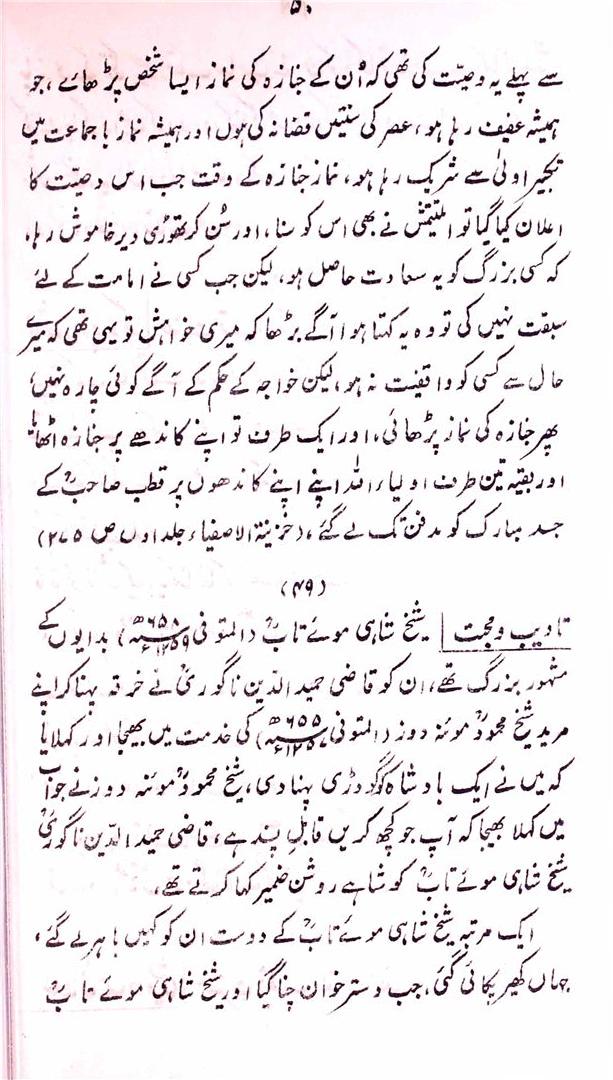 ۵۰
سے پہلے یہ وصیت کی تھی کہ اُن کے جنازہ کی نماز ایسا شخص پڑھائے، جو
ہمیشہ عفیف رہا ہو، عصر کی سنتیں قضا نہ کی ہوں اور ہمیشہ نماز با جماعت میں
تکبیر اولیٰ سے شریک رہا ہو، نماز جنازہ کے وقت جب اس وصیت کا
اعلان کیا گیا تو التمش نے بھی اس کو سنا، اور سُن کر تھوڑی دیر خاموش رہا،
کہ کسی بزرگ کو یہ سعادت حاصل ہو، لیکن جب کسی نے امامت کے لئے
سبقت نہیں کی تو وہ یہ کہتا ہوا آگے بڑھا کہ میری خواہش تو یہی تھی کہ میرے
حال سے کسی کو واقفیت نہ ہو، لیکن خواجہ کے حکم کے آگے کوئی چارہ نہیں،
پھر جنازہ کی نماز پڑھائی، اور ایک طرف تو اپنے کاندھے پر جنازہ اٹھایا
اور بقیہ تین طرف اولیاء اللہ اپنے اپنے کاندھوں پر قطب صاحبؒ کے
جسد مبارک کو مدفن تک لے گئے، (خزینۃ الاصفیاء جلد اول ص ۲۷۵)
(۴۹)
تادیب و محبت | شیخ شاہی موئے تابؒ (المتوفی ۶۵۸ھ ۱۲۵۹ء) بدایوں کے
مشہور بزرگ تھے، ان کو قاضی حمید الدین ناگوریؒ نے خرقہ پہنا کر اپنے
مرید شیخ محمودؒ موئنہ دوز (المتوفی ۶۵۵ھ ۱۲۵۷ء) کی خدمت میں بھیجا اور کہلایا
کہ میں نے ایک بادشاہ کو گودڑی پہنا دی، شیخ محمودؒ موئنہ دوز نے جواب
میں کہلا بھیجا کہ آپ جو کچھ کریں قابلِ پسند ہے، قاضی حمید الدین ناگوریؒ
شیخ شاہی موئے تابؒ کو شاہے روشن ضمیر کہا کرتے تھے،
ایک مرتبہ شیخ شاہی موئے تابؒ کے دوست ان کو کہیں باہر لے گئے،
جہاں کھیر پکائی گئی، جب دسترخوان چنا گیا اور شیخ شاہی موئے تابؒ